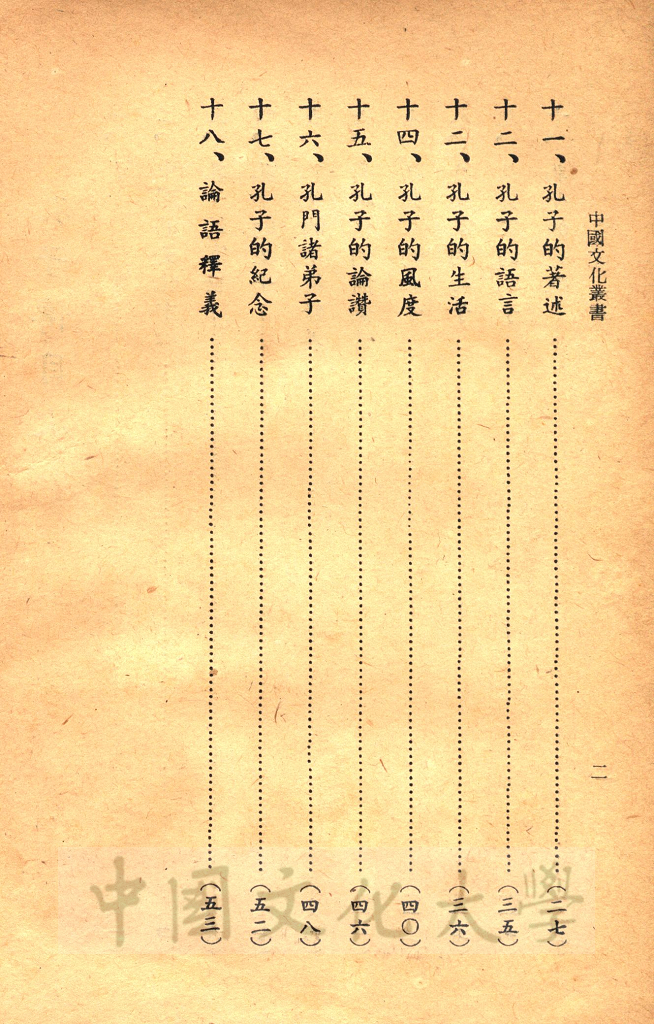 中國文化叢書
二
十一、孔子的著述……(二七)
十二、孔子的語言……(三五)
十二、孔子的生活……(三六)
十四、孔子的風度……(四〇)
十五、孔子的論讚……(四六)
十六、孔門諸弟子……(四八)
十七、孔子的紀念……(五二)
十八、論語釋義……(五三)
中國文化大學